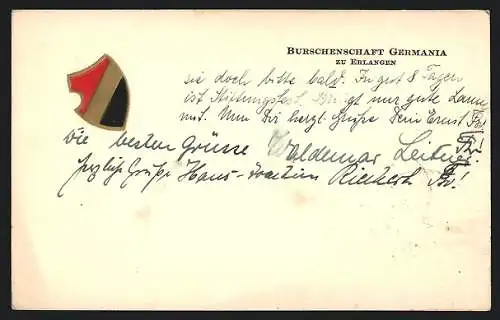 BURSCHENSCHAFT GERMANIA
ZU ERLANGEN
sie doch bitte bald. In gut 8 Tagen
ist Stiftungsfest. nur gute Laune
mit. Nun Dir herzl. Grüße Dein Ernst
die besten Grüsse Waldemar Leitner
herzliche Grüße Hans-Joachim Rickert